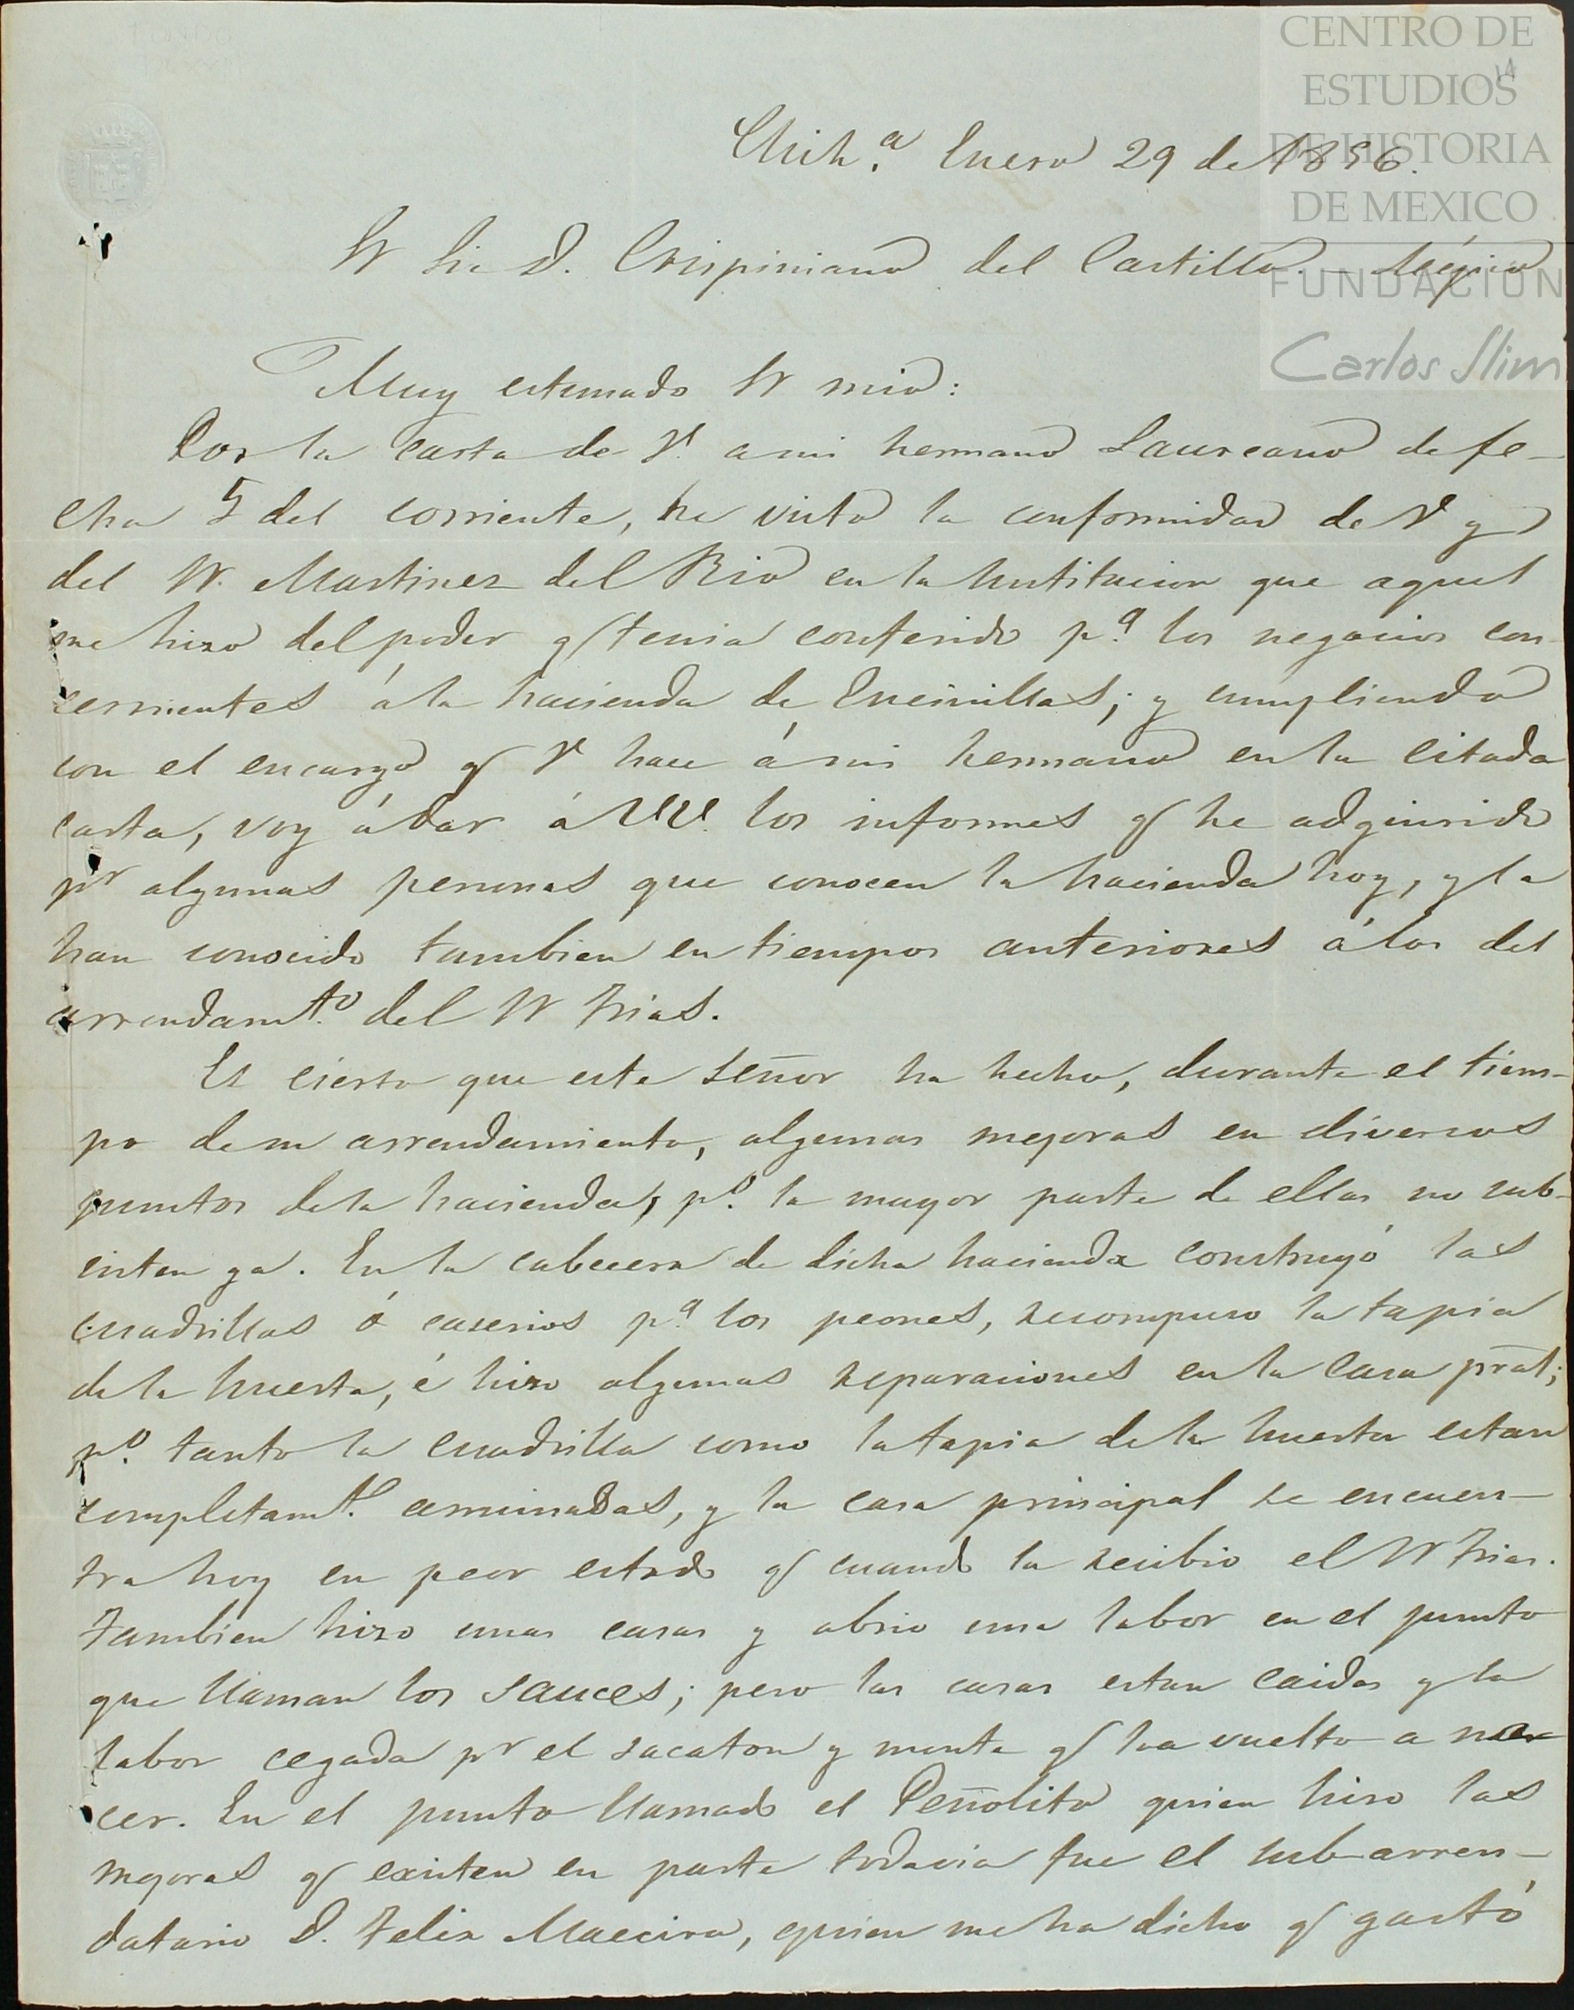 CENTRO DE
ESTUDIOS
DE HISTORIA
DE MEXICO
FUNDACION
Carlos Slim
14
Chih.ª Enero 29 de 1856.
Sr Lic D. Crispiniano del Castillo.- Mégico
Muy estimado Sr mio:
Por la carta de V. a mi hermano Laureano de fe-
cha 5 del corriente, he visto la conformidad de V y
del Sr. Martinez del Rio en la sustitucion que aquel
me hizo del poder q tenia conferido p.ª los negocios con-
cernientes á la hacienda de Encinillas; y cumpliendo
con el encargo q V hace á mi hermano en la citada
carta, voy á dar á VV. los informes q he adquirido
pr algunas personas que conocen la hacienda hoy, y la
han conocido tambien en tiempos anteriores á los del
arrendamt.º del Sr Trias.
Es cierto que este Señor ha hecho, durante el tiem-
po de su arrendamiento, algunas mejoras en diversos
puntos de la hacienda, p.º la mayor parte de ellas no sub-
sisten ya. En la cabecera de dicha hacienda construyó las
cuadrillas ó caserios p.ª los peones, recompuso la tapia
de la huerta, é hizo algunas reparaciones en la casa pral;
p.º tanto la cuadrilla como la tapia de la huerta estan
completamt.e arruinadas, y la casa principal se encuen-
tra hoy en peor estado q cuando la recibio el Sr Trias.
Tambien hizo unas casas y abrio una labor en el punto
que llaman los Sauces; pero las casas estan caidas y la
labor cegada pr el sacaton y monte q ha vuelto a na-
cer. En el punto llamado el Peñolito quien hizo las
mejoras q existen en parte todavia fue el sub-arren-
datario D. Felix Maceira, quien me ha dicho q gastó